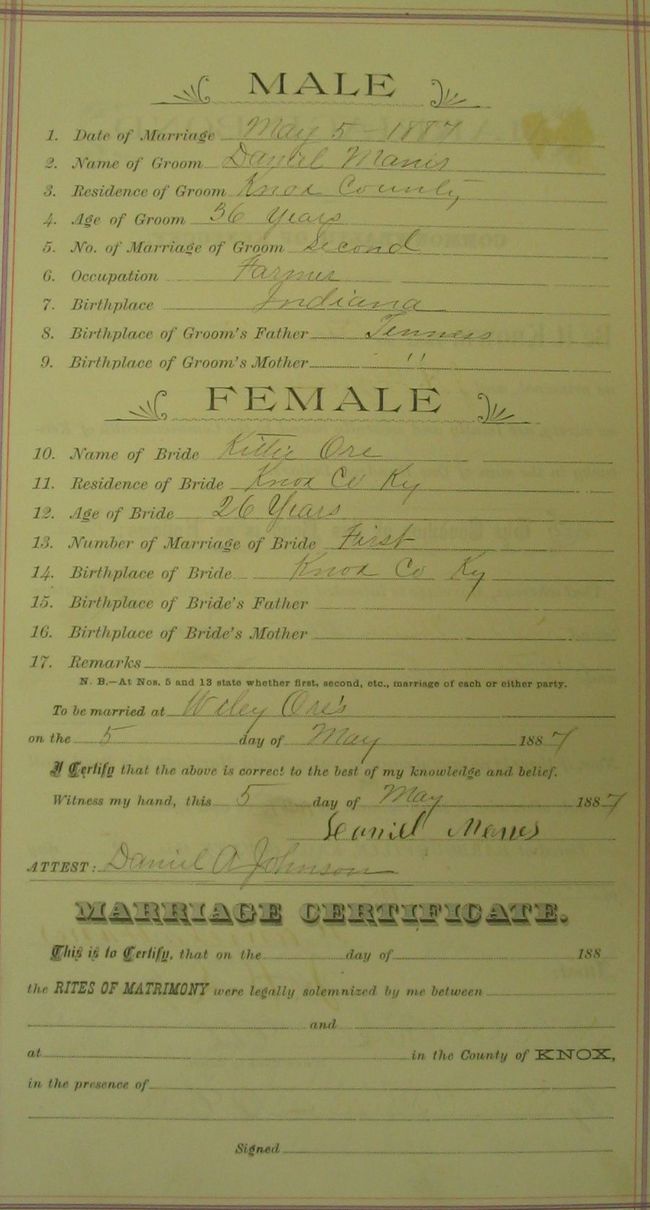 MALE
1. Date of Marriage May 5 - 1887
2. Name of Groom Daniel Manis
3. Residence of Groom Knox County
4. Age of Groom 36 years
5. No. of Marriage of Groom Second
6. Occupation Farmer
7. Birthplace Indiana
8. Birthplace of Groom's Father Tenness
9. Birthplace of Groom's Mother "
FEMALE
10. Name of Bride Kittie Ore
11. Residence of Bride Knox Co Ky
12. Age of Bride 26 Years
13. Number of Marriage of Bride First
14. Birthplace of Bride Knox Co Ky
15. Birthplace of Bride's Father
16. Birthplace of Bride's Mother
17. Remarks
N. B.—At Nos. 5 and 13 state whether first, second, etc., marriage of each or either party.
To be married at Wiley Ore's
on the 5 day of May 1887
I Certify that the above is correct to the best of my knowledge and belief.
Witness my hand, this 5 day of May 1887
Daniel Manes
ATTEST: Daniel A Johnson
MARRIAGE CERTIFICATE.
This is to Certify, that on the day of 188
the RITES OF MATRIMONY were legally solemnized by me between
and
at in the County of KNOX,
in the presence of
Signed